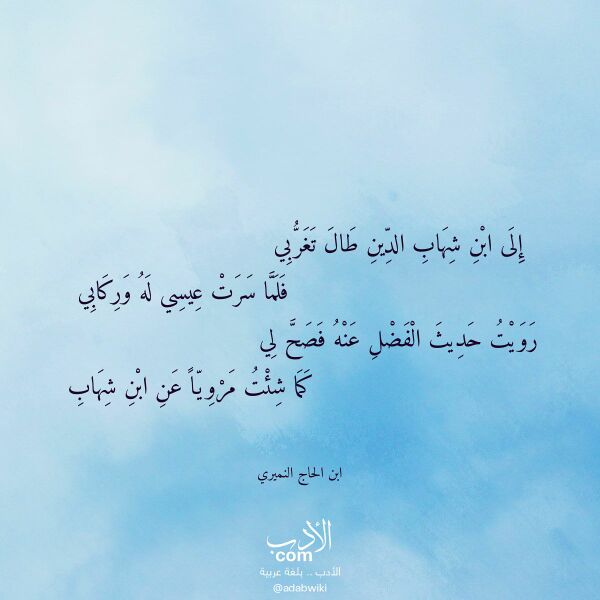 إِلَى ابْنِ شِهَابِ الدِّينِ طَالَ تَغَرُّبِي
فَلَمَّا سَرَتْ عِيسِي لَهُ وَرِكَابِي
رَوَيْتُ حَدِيثَ الْفَضْلِ عَنْهُ فَصَحَّ لِي
كَمَا شِئْتُ مَرْوِيّاً عَنِ ابْنِ شِهَابِ
ابن الحاج النميري
الأدب
com
الأدب .. بلغة عربية
@adabwiki